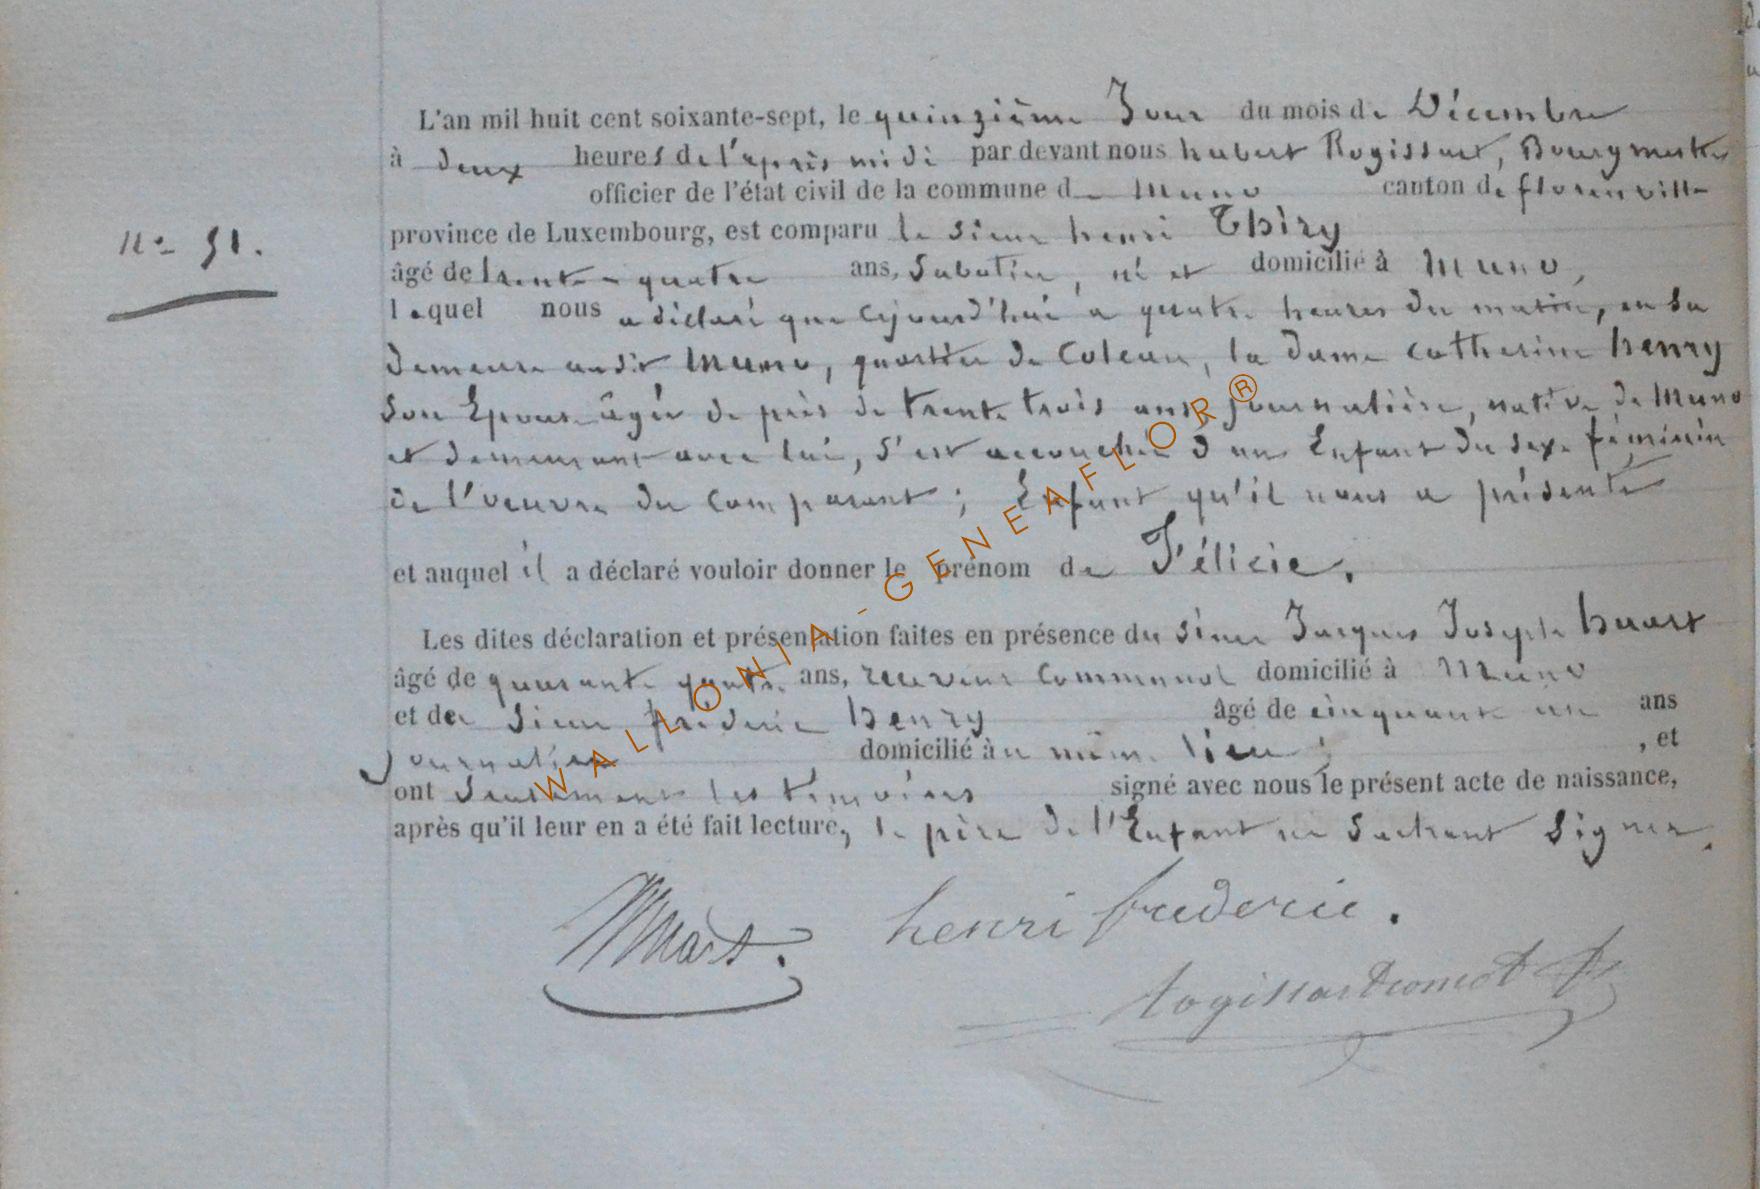 L'an mil huit cent soixante-sept, le quinzième Jour du mois de Décembre
à deux heures de l'après midi par devant nous hubert Rogissart, Bourgmestre
officier de l'état civil de la commune de Muno canton de florenville
province de Luxembourg, est comparu le sieur henri Thiry
N° 51.
âgé de trente-quatre ans, Sabotier, né et domicilié à Muno,
lequel nous a déclaré que cejourd'hui à quatre heures du matin, en sa
demeure audit Muno, quartier de , la dame catherine henry
son Epouse âgée de près de trente trois ans journalière, native de Muno
et demeurant avec lui, s'est accouchée d'un Enfant du sexe féminin
de l'oeuvre du Comparant ; Enfant qu'il nous a présenté
et auquel il a déclaré vouloir donner le prénom de Félicie.
Les dites déclaration et présentation faites en présence du sieur Jacques Joseph huart
âgé de quarante quatre ans, receveur Communal domicilié à Muno
et de sieur frederic henry âgé de cinquante un ans
Journalier domicilié au même lieu ; , et
ont seulement les témoins signé avec nous le présent acte de naissance,
après qu'il leur en a été fait lecture, le père de l'Enfant ne sachant signer.
henri frederic.
WALLONIA-GENEAFLOR®